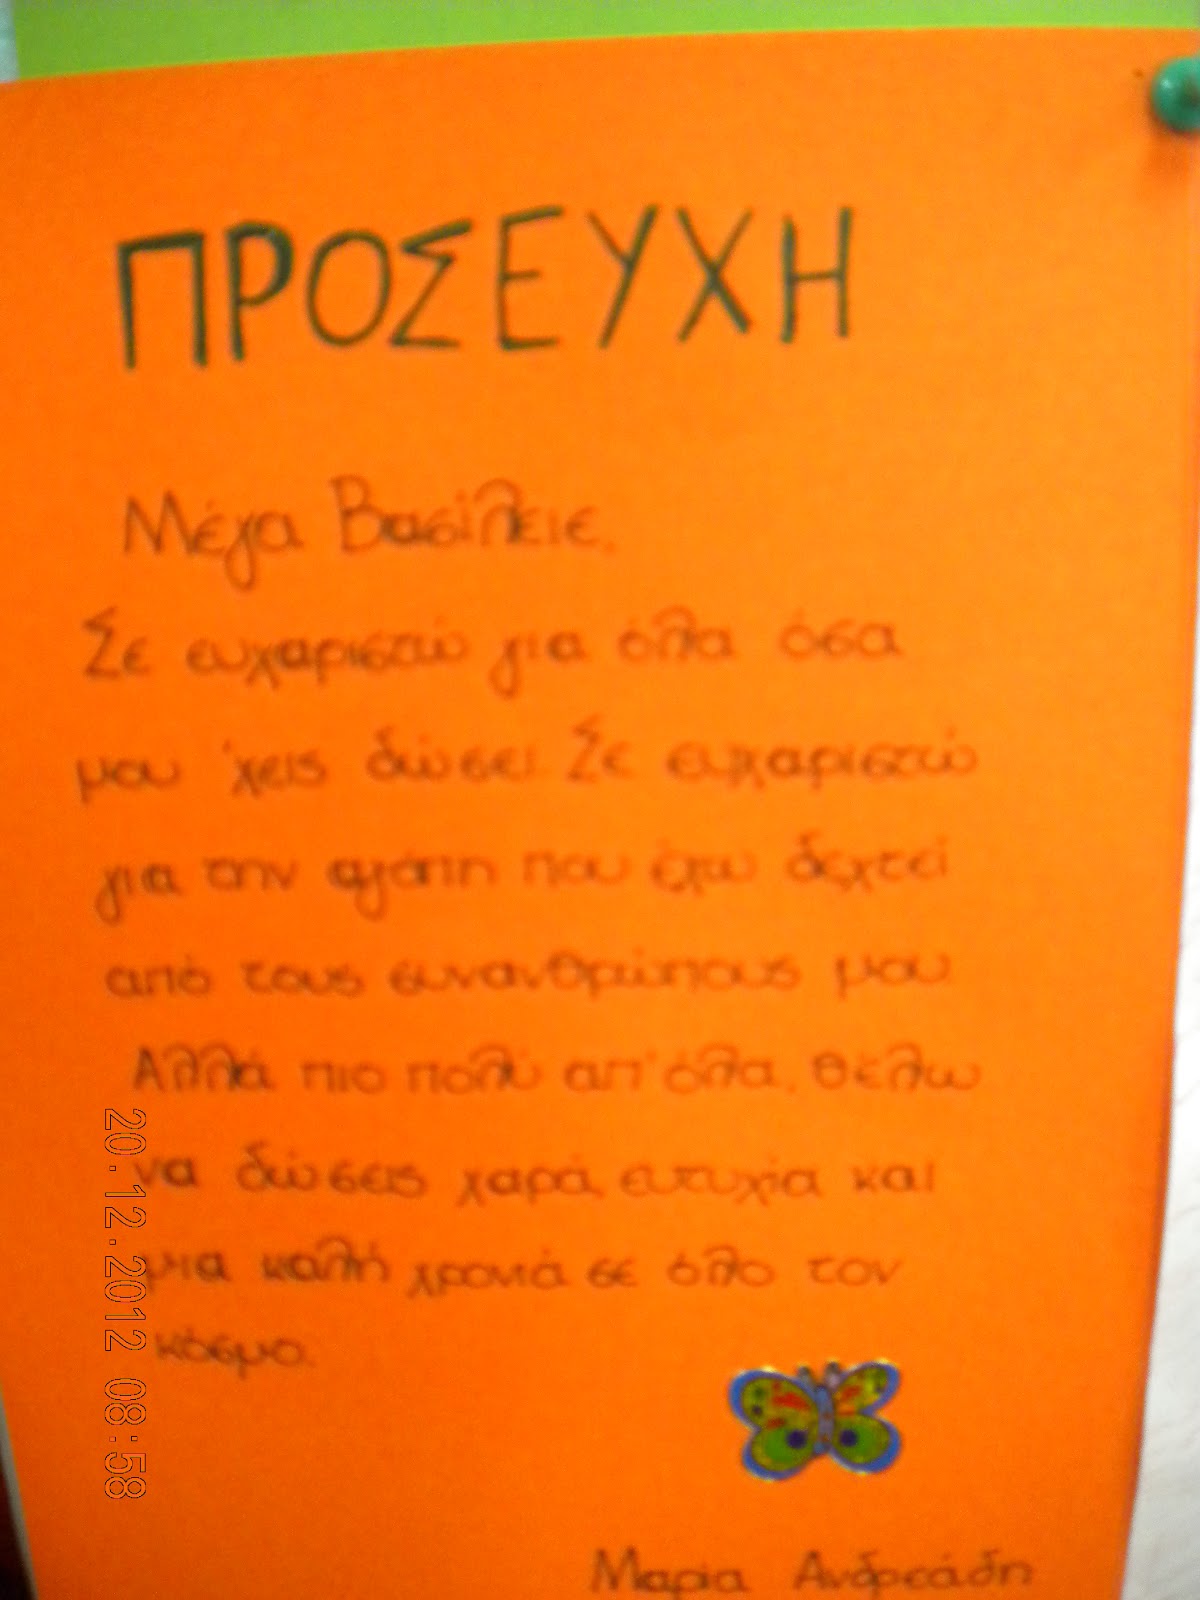 ΠΡΟΣΕΥΧΗ
Μέγα Βασίλειε,
Σε ευχαριστώ για όλα όσα
μου 'χεις δώσει. Σε ευχαριστώ
για την αγάπη που έχω δεχτεί
από τους συνανθρώπους μου.
Αλλά πιο πολύ απ' όλα, θέλω
να δώσεις χαρά, ευτυχία και
μια καλή χρονιά σε όλο τον
κόσμο.
Μαρία Ανδρεάδη
20.12.2012 08:58